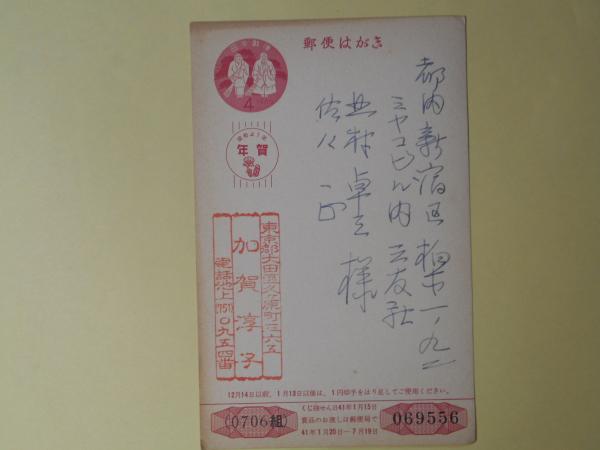 郵便はがき
4
年賀
都内新宿区柏木一ノ九二
ミヤコビル内 三友社
様
東京都大田区久ヶ原町三六五
加賀淳子
電話池上(751)〇九五四番
12月14日以前、1月13日以後は、1円切手をはり足してご使用ください。
(0706組)
くじ抽せん日41年1月15日
賞品のお渡しは郵便局で
41年1月20日―7月19日
069556